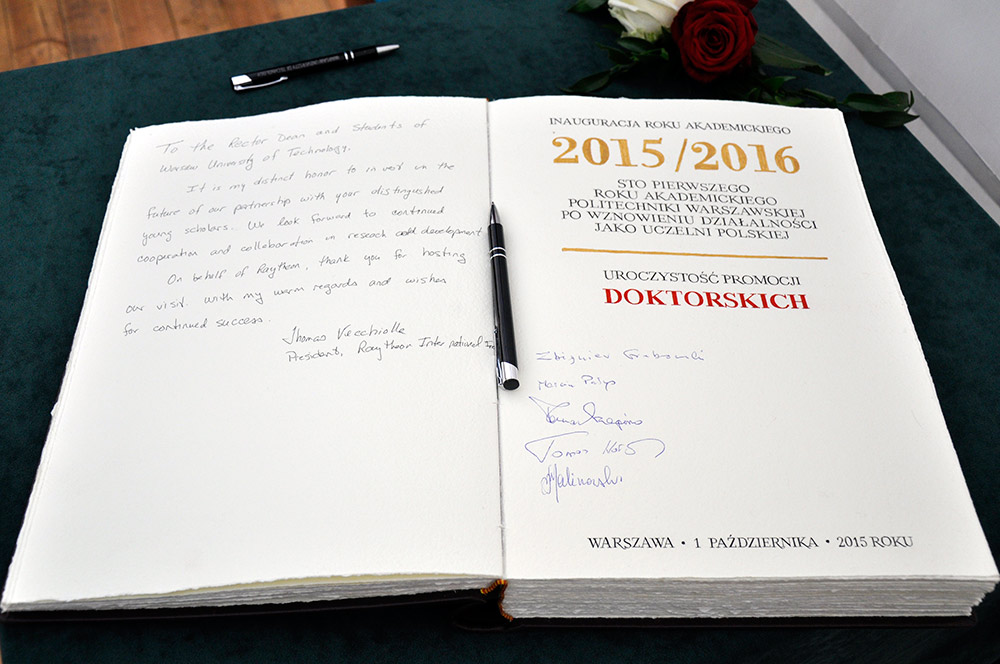 To the Rector Dean and Students of
Warsaw University of Technology.
It is my distinct honor to invest in the
future of our partnership with your distinguished
young scholars. We look forward to continued
cooperation and collaboration in reseach and development
On behalf of Raytheon, thank you for hosting
our visit. With my warm regards and wishes
for continued success.
Thomas Vecchiolla
President, Raytheon International
INAUGURACJA ROKU AKADEMICKIEGO
2015/2016
STO PIERWSZEGO
ROKU AKADEMICKIEGO
POLITECHNIKI WARSZAWSKIEJ
PO WZNOWIENIU DZIAŁALNOŚCI
JAKO UCZELNI POLSKIEJ
UROCZYSTOŚĆ PROMOCJI
DOKTORSKICH
Zbigniew Grabowski
Marcin
Tomas
Malinowski
WARSZAWA • 1 PAŹDZIERNIKA • 2015 ROKU